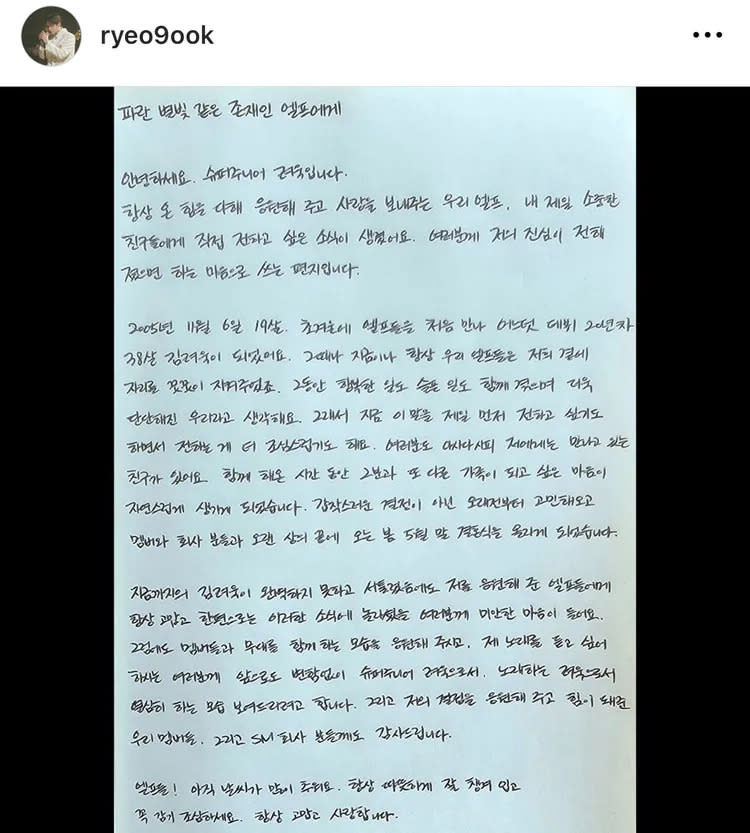 ryeo9ook
파란 별빛 같은 존재인 엘프에게
안녕하세요. 슈퍼주니어 려욱입니다.
항상 온 힘을 다해 응원해 주고 사랑을 보내주는 우리 엘프. 내 제일 소중한
친구들에게 직접 전하고 싶은 소식이 생겼어요. 여러분께 저의 진심이 전해
졌으면 하는 마음으로 쓰는 편지입니다.
2005년 11월 6일 19살. 초겨울에 엘프들을 처음 만나 어느덧 데뷔 20년차
38살 김려욱이 되었어요. 그때나 지금이나 항상 우리 엘프들은 저희 곁에
자리를 꿋꿋이 지켜주었죠. 그동안 행복한 일도 슬픈 일도 함께 겪으며 더욱
단단해진 우리라고 생각해요. 그래서 지금 이 말을 제일 먼저 전하고 싶기도
하면서 전하는 게 더 조심스럽기도 해요. 여러분도 아시다시피 저에게는 만나고 있는
친구가 있어요. 함께 해온 시간 동안 그분과 또 다른 가족이 되고 싶은 마음이
자연스럽게 생기게 되었습니다. 갑작스러운 결정이 아닌 오래전부터 고민해오고
멤버와 회사 분들과 오랜 상의 끝에 오는 봄 5월 말 결혼식을 올리게 되었습니다.
지금까지의 김려욱이 완벽하지 못하고 서툴렀음에도 저를 응원해 준 엘프들에게
항상 고맙고 한편으로는 이러한 소식에 놀라셨을 여러분께 미안한 마음이 들어요.
그럼에도 멤버들과 무대를 함께 하는 모습을 응원해 주시고, 제 노래를 듣고 싶어
하시는 여러분께 앞으로도 변함없이 슈퍼주니어 려욱으로서, 노래하는 려욱으로서
열심히 하는 모습 보여드리려고 합니다. 그리고 저의 결정을 응원해 주고 힘이 돼준
우리 멤버들, 그리고 SM 회사 분들께도 감사드립니다.
엘프들! 아직 날씨가 많이 추워요. 항상 따뜻하게 잘 챙겨 입고
꼭 감기 조심하세요. 항상 고맙고 사랑합니다.